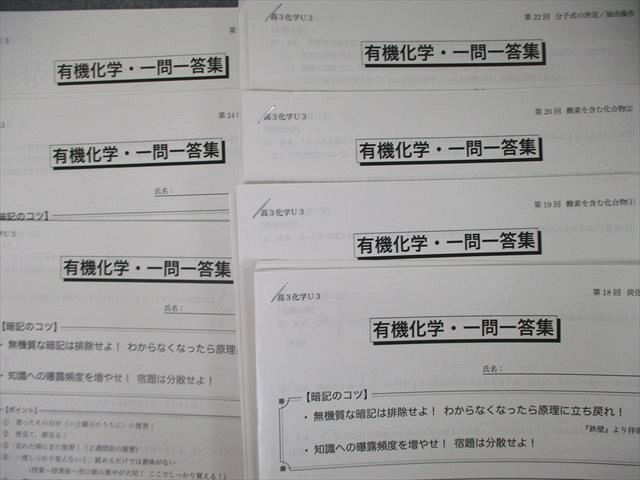 有機化学・一問一答集
第24
有機化学・一問一答集
氏名:
【暗記のコツ】
有機化学・一問一答集
氏名:
【暗記のコツ】
・無機質な暗記は排除せよ! わからなくなったら原理
・知識への曝露頻度を増やせ! 宿題は分散せよ!
【ポイント】
③ 忘れた頃にまた復習!(2週間前の復習)
高3化学U3
第22回 分子式の決定/抽出操作
有機化学・一問一答集
高3化学U3
第20回 酸素を含む化合物(2)
有機化学・一問一答集
高3化学U3
第19回 酸素を含む化合物(1)
有機化学・一問一答集
高3化学U3
第18回 炭化
有機化学・一問一答集
氏名:
【暗記のコツ】
・無機質な暗記は排除せよ! わからなくなったら原理に立ち戻れ!
『鉄壁』より拝
・知識への曝露頻度を増やせ! 宿題は分散せよ!